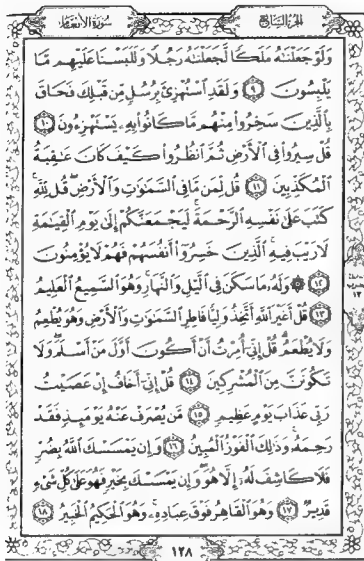 سورة الأنعام
الجزء السابع
وَلَوْ جَعَلْنَٰهُ مَلَكًا لَّجَعَلْنَٰهُ رَجُلًا وَلَلَبَسْنَا عَلَيْهِم مَّا
يَلْبِسُونَ ٩ وَلَقَدِ ٱسْتُهْزِئَ بِرُسُلٍ مِّن قَبْلِكَ فَحَاقَ
بِٱلَّذِينَ سَخِرُوا۟ مِنْهُم مَّا كَانُوا۟ بِهِۦ يَسْتَهْزِءُونَ ١٠
قُلْ سِيرُوا۟ فِى ٱلْأَرْضِ ثُمَّ ٱنظُرُوا۟ كَيْفَ كَانَ عَٰقِبَةُ
ٱلْمُكَذِّبِينَ ١١ قُل لِّمَن مَّا فِى ٱلسَّمَٰوَٰتِ وَٱلْأَرْضِ ۖ قُل لِّلَّهِ ۚ
كَتَبَ عَلَىٰ نَفْسِهِ ٱلرَّحْمَةَ ۚ لَيَجْمَعَنَّكُمْ إِلَىٰ يَوْمِ ٱلْقِيَٰمَةِ
لَا رَيْبَ فِيهِ ۚ ٱلَّذِينَ خَسِرُوٓا۟ أَنفُسَهُمْ فَهُمْ لَا يُؤْمِنُونَ
١٢ ۞ وَلَهُۥ مَا سَكَنَ فِى ٱلَّيْلِ وَٱلنَّهَارِ ۚ وَهُوَ ٱلسَّمِيعُ ٱلْعَلِيمُ
١٣ قُلْ أَغَيْرَ ٱللَّهِ أَتَّخِذُ وَلِيًّا فَاطِرِ ٱلسَّمَٰوَٰتِ وَٱلْأَرْضِ وَهُوَ يُطْعِمُ
وَلَا يُطْعَمُ ۗ قُلْ إِنِّىٓ أُمِرْتُ أَنْ أَكُونَ أَوَّلَ مَنْ أَسْلَمَ ۖ وَلَا
تَكُونَنَّ مِنَ ٱلْمُشْرِكِينَ ١٤ قُلْ إِنِّىٓ أَخَافُ إِنْ عَصَيْتُ
رَبِّى عَذَابَ يَوْمٍ عَظِيمٍ ١٥ مَّن يُصْرَفْ عَنْهُ يَوْمَئِذٍ فَقَدْ
رَحِمَهُۥ ۚ وَذَٰلِكَ ٱلْفَوْزُ ٱلْمُبِينُ ١٦ وَإِن يَمْسَسْكَ ٱللَّهُ بِضُرٍّ
فَلَا كَاشِفَ لَهُۥٓ إِلَّا هُوَ ۖ وَإِن يَمْسَسْكَ بِخَيْرٍ فَهُوَ عَلَىٰ كُلِّ شَىْءٍ
قَدِيرٌ ١٧ وَهُوَ ٱلْقَاهِرُ فَوْقَ عِبَادِهِۦ ۚ وَهُوَ ٱلْحَكِيمُ ٱلْخَبِيرُ ١٨
١٢٨